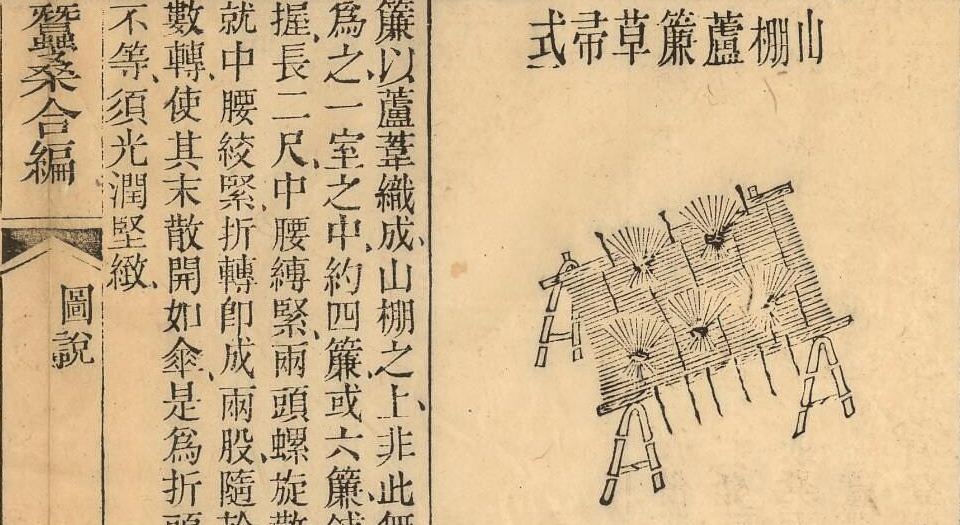 山棚蘆簾草帚式
簾以蘆葦織成、山棚之上、非此無
爲之、一室之中、約四簾、或六簾、
握、長二尺、中腰縛緊、兩頭螺旋散
就中腰絞緊、折轉卽成兩股、隨
數轉、使其末散開如傘、是爲折
不等、須光潤堅緻、
蠶桑合編
圖說